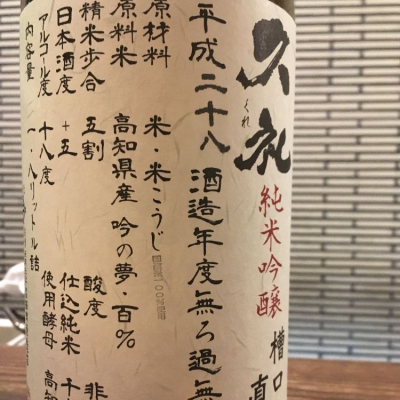 久礼
くれ
純米吟醸 槽口直
平成二十八酒造年度無ろ過無
原材料 米・米こうじ
原料米 高知県産 吟の夢・百%
精米歩合 五割 酸度 非
日本酒度 +五 仕込純米 十
アルコール度 十八度 使用酵母 高知
内容量 一・八リットル詰